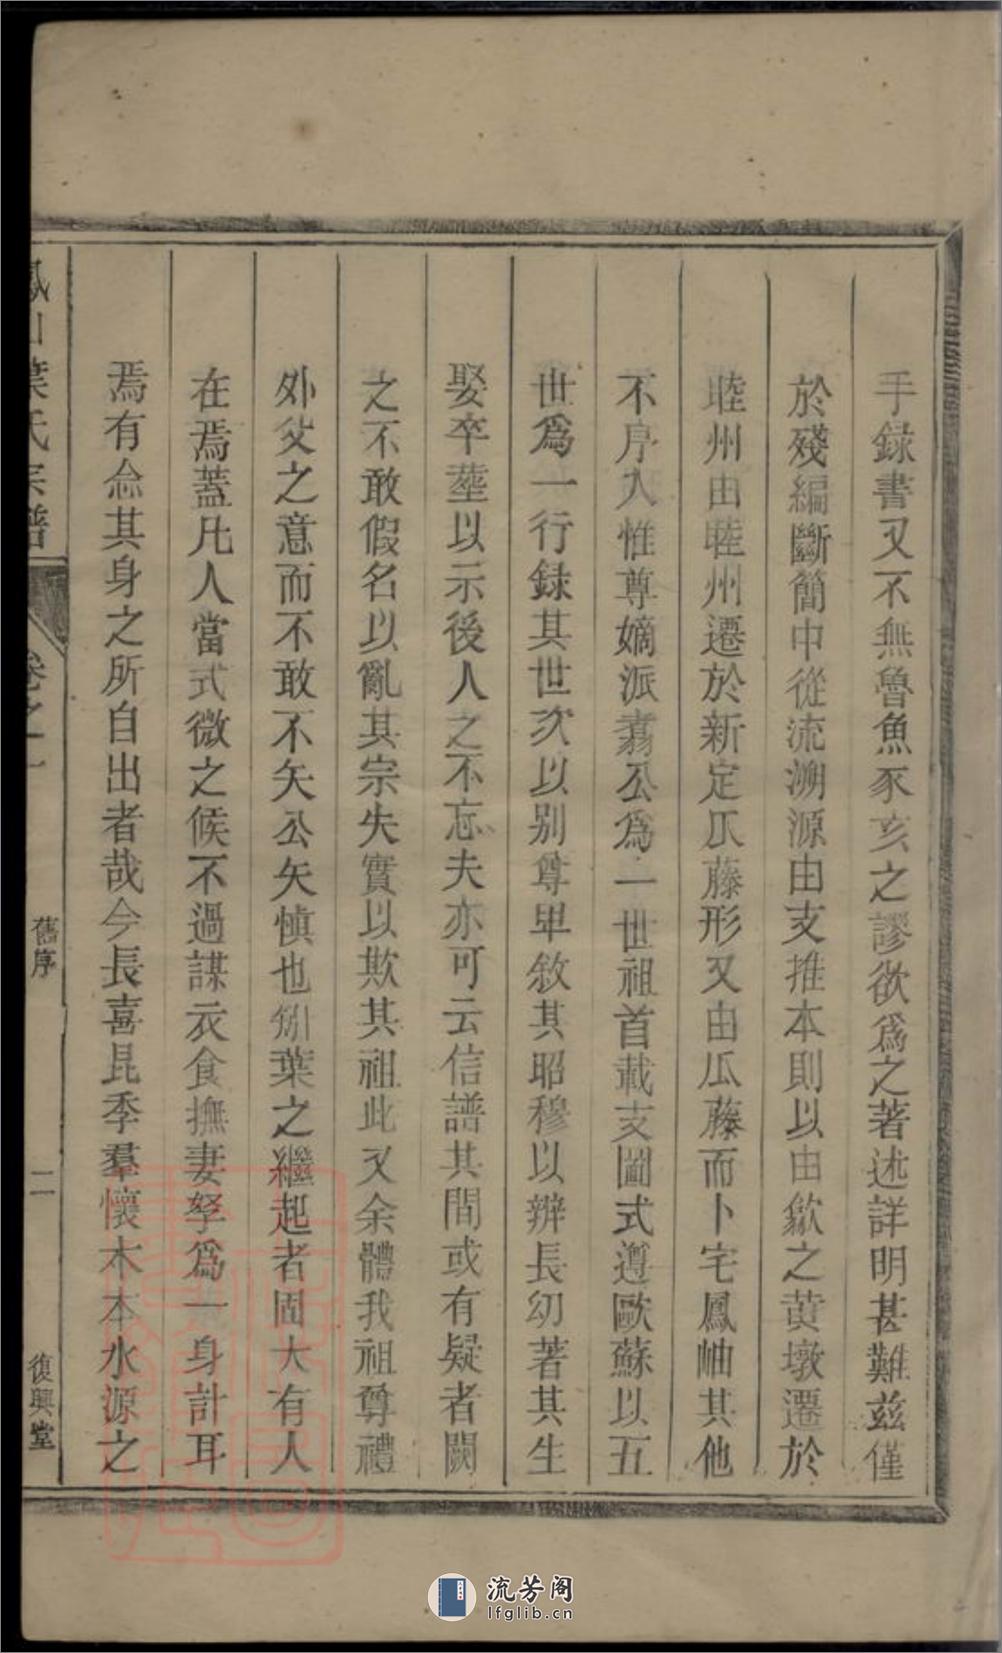 手録書又不無魯魚豕亥之謬欲爲之著述詳明甚難兹僅
於殘編斷簡中從流溯源由支推本則以由歙之黄墩遷於
睦州由睦州遷於新定瓜藤形又由瓜藤而卜宅鳳岫其他
不序入惟尊嫡派翥公爲一世祖首載支圖式遵歐蘇以五
世爲一行録其世次以别尊卑敘其昭穆以辨長幼著其生
娶卒塟以示後人之不忘夫亦可云信譜其間或有疑者闕
之不敢假名以亂其宗失實以欺其祖此又余體我祖尊禮
外父之意而不敢不矢公矢慎也矧葉之繼起者固大有人
在焉蓋凡人當式微之候不過謀衣食撫妻孥爲一身計耳
焉有念其身之所自出者哉今長喜昆季羣懷木本水源之
鳳山葉氏宗譜
卷之一
舊序
二
復興堂
流芳阁
lfglib.cn